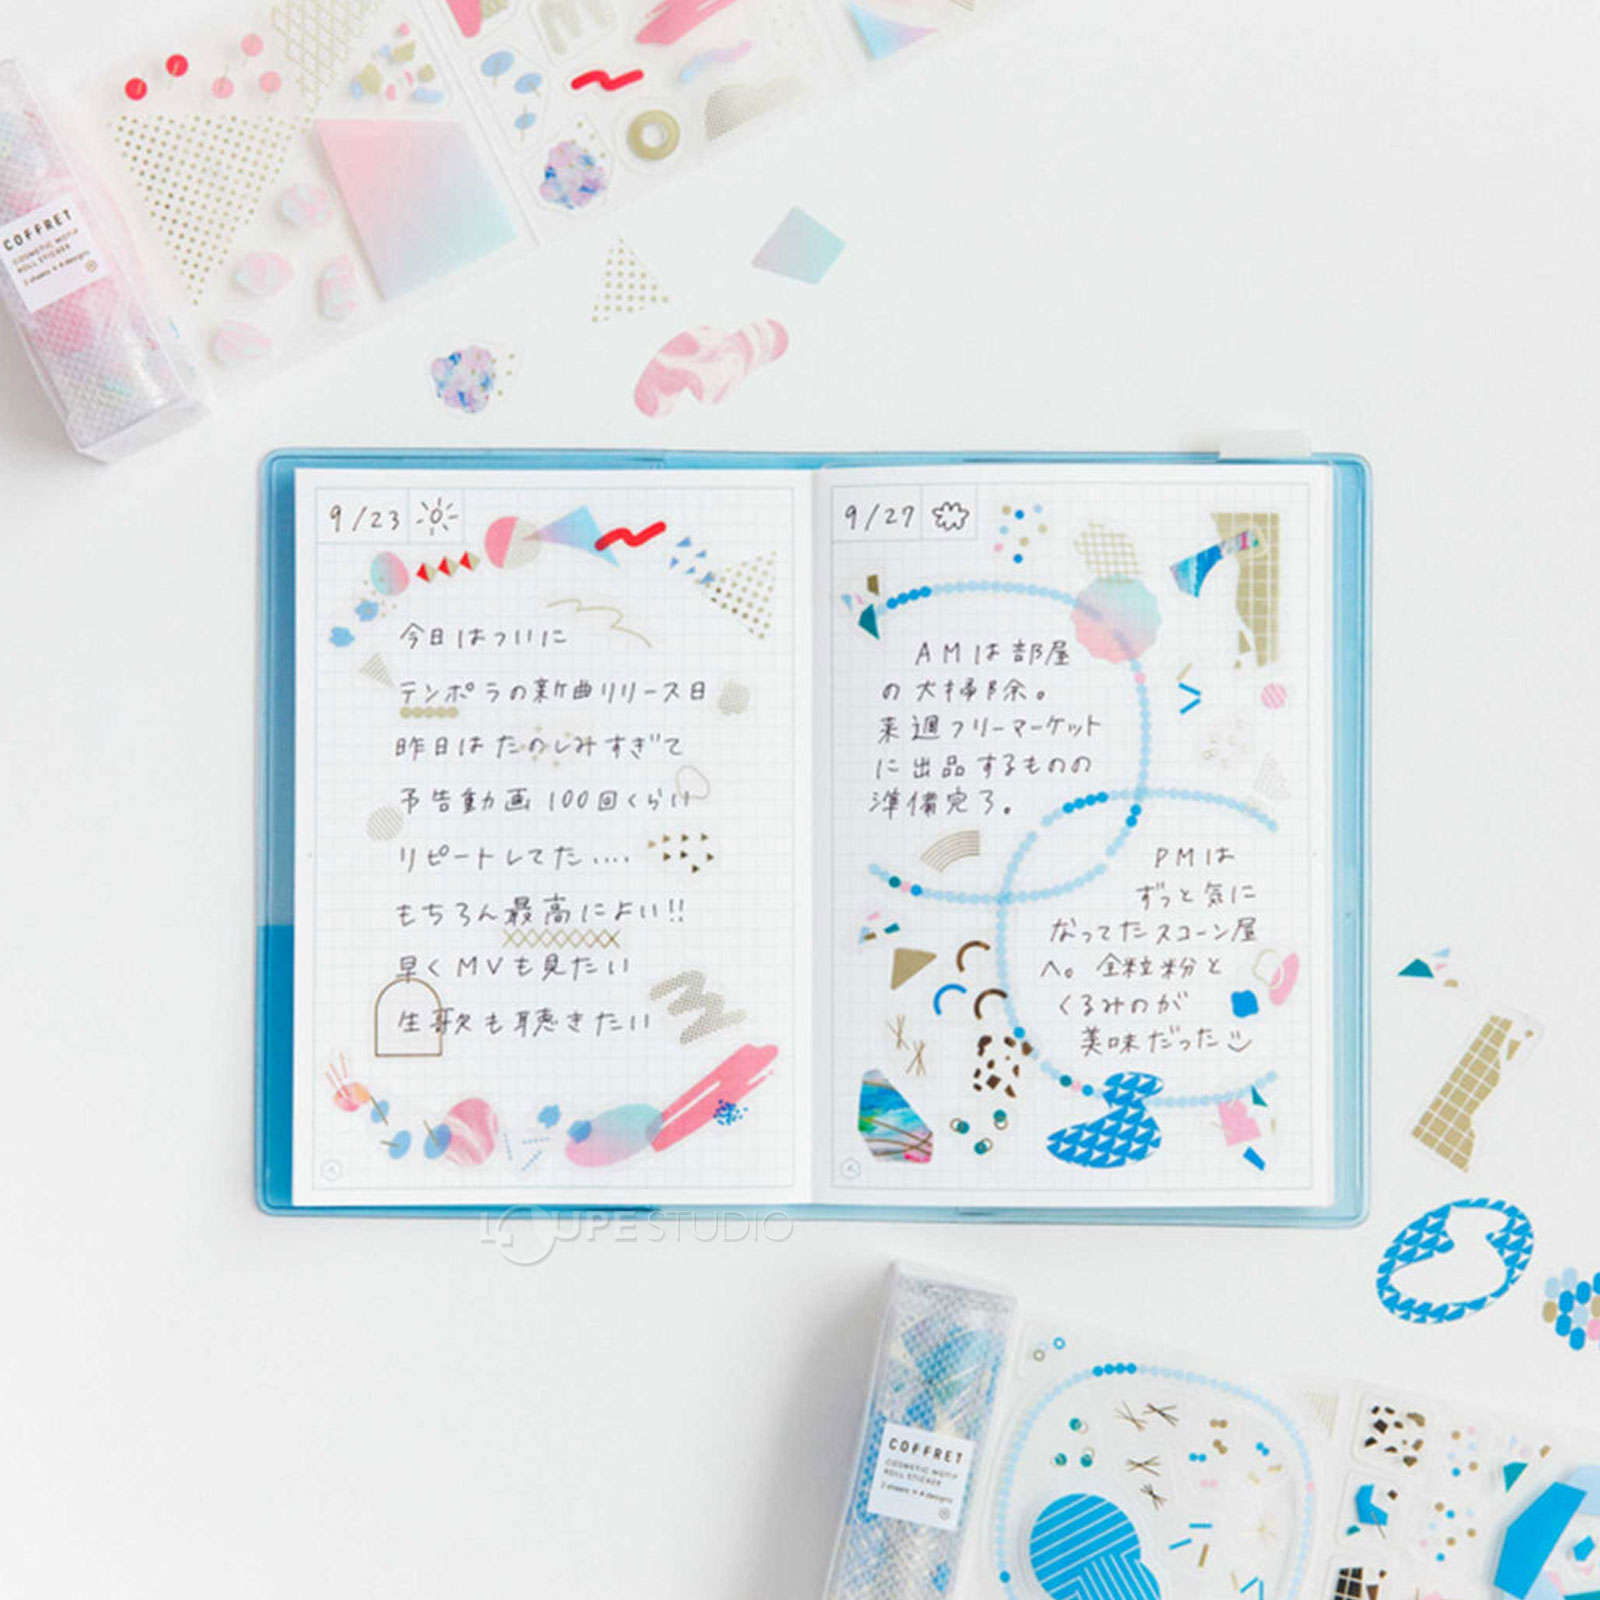 COFFRET
COSMETIC MOTIF
ROLL STICKER
2 sheets × 4 designs
9/23
今日はついに
テンポラの新曲リリース日
昨日はたのしみすぎて
予告動画100回くらい
リピートしてた....
もちろん最高によい!!
早くMVも見たい
生歌も聴きたい
9/27
AMは部屋
の大掃除。
来週フリーマーケット
に出品するものの
準備完了。
PMは
ずっと気に
なってたスコーン屋
へ。全粒粉と
くるみのが
美味だった
LOUPE STUDIO
COFFRET
COSMETIC MOTIF
ROLL STICKER
2 sheets × 4 designs